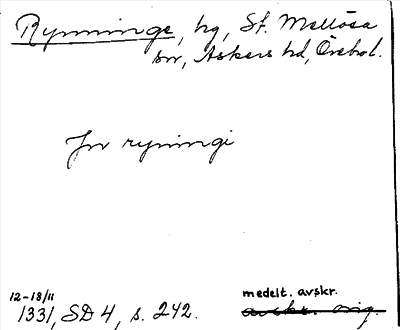 Rynninge, hg, St. Mellösa
sn, Askers hd, Örebro l.
Jn ryningi
12-18/11
1331, SD 4, s. 242.
medelt. avskr.
avskr. orig.